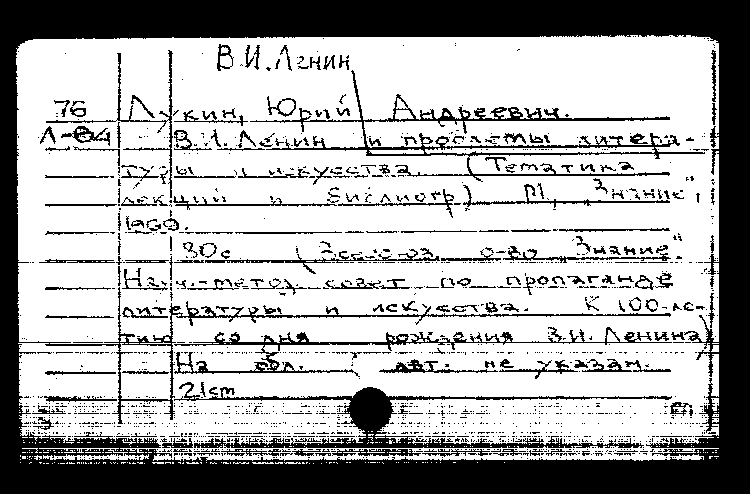 В.И.Ленин
76 Лукин, Юрий Андреевич.
Л-84 В.И. Ленин и проблемы литера-
туры и искусства. (Тематика
лекций и библиогр.) М., "Знание",
1960.
30с (Всесоюз. о-во "Знание".
Науч.-метод. совет по пропаганде
литературы и искусства. К 100-ле-
тию со дня рождения В.И. Ленина)
На обл. авт. не указан.
21cm